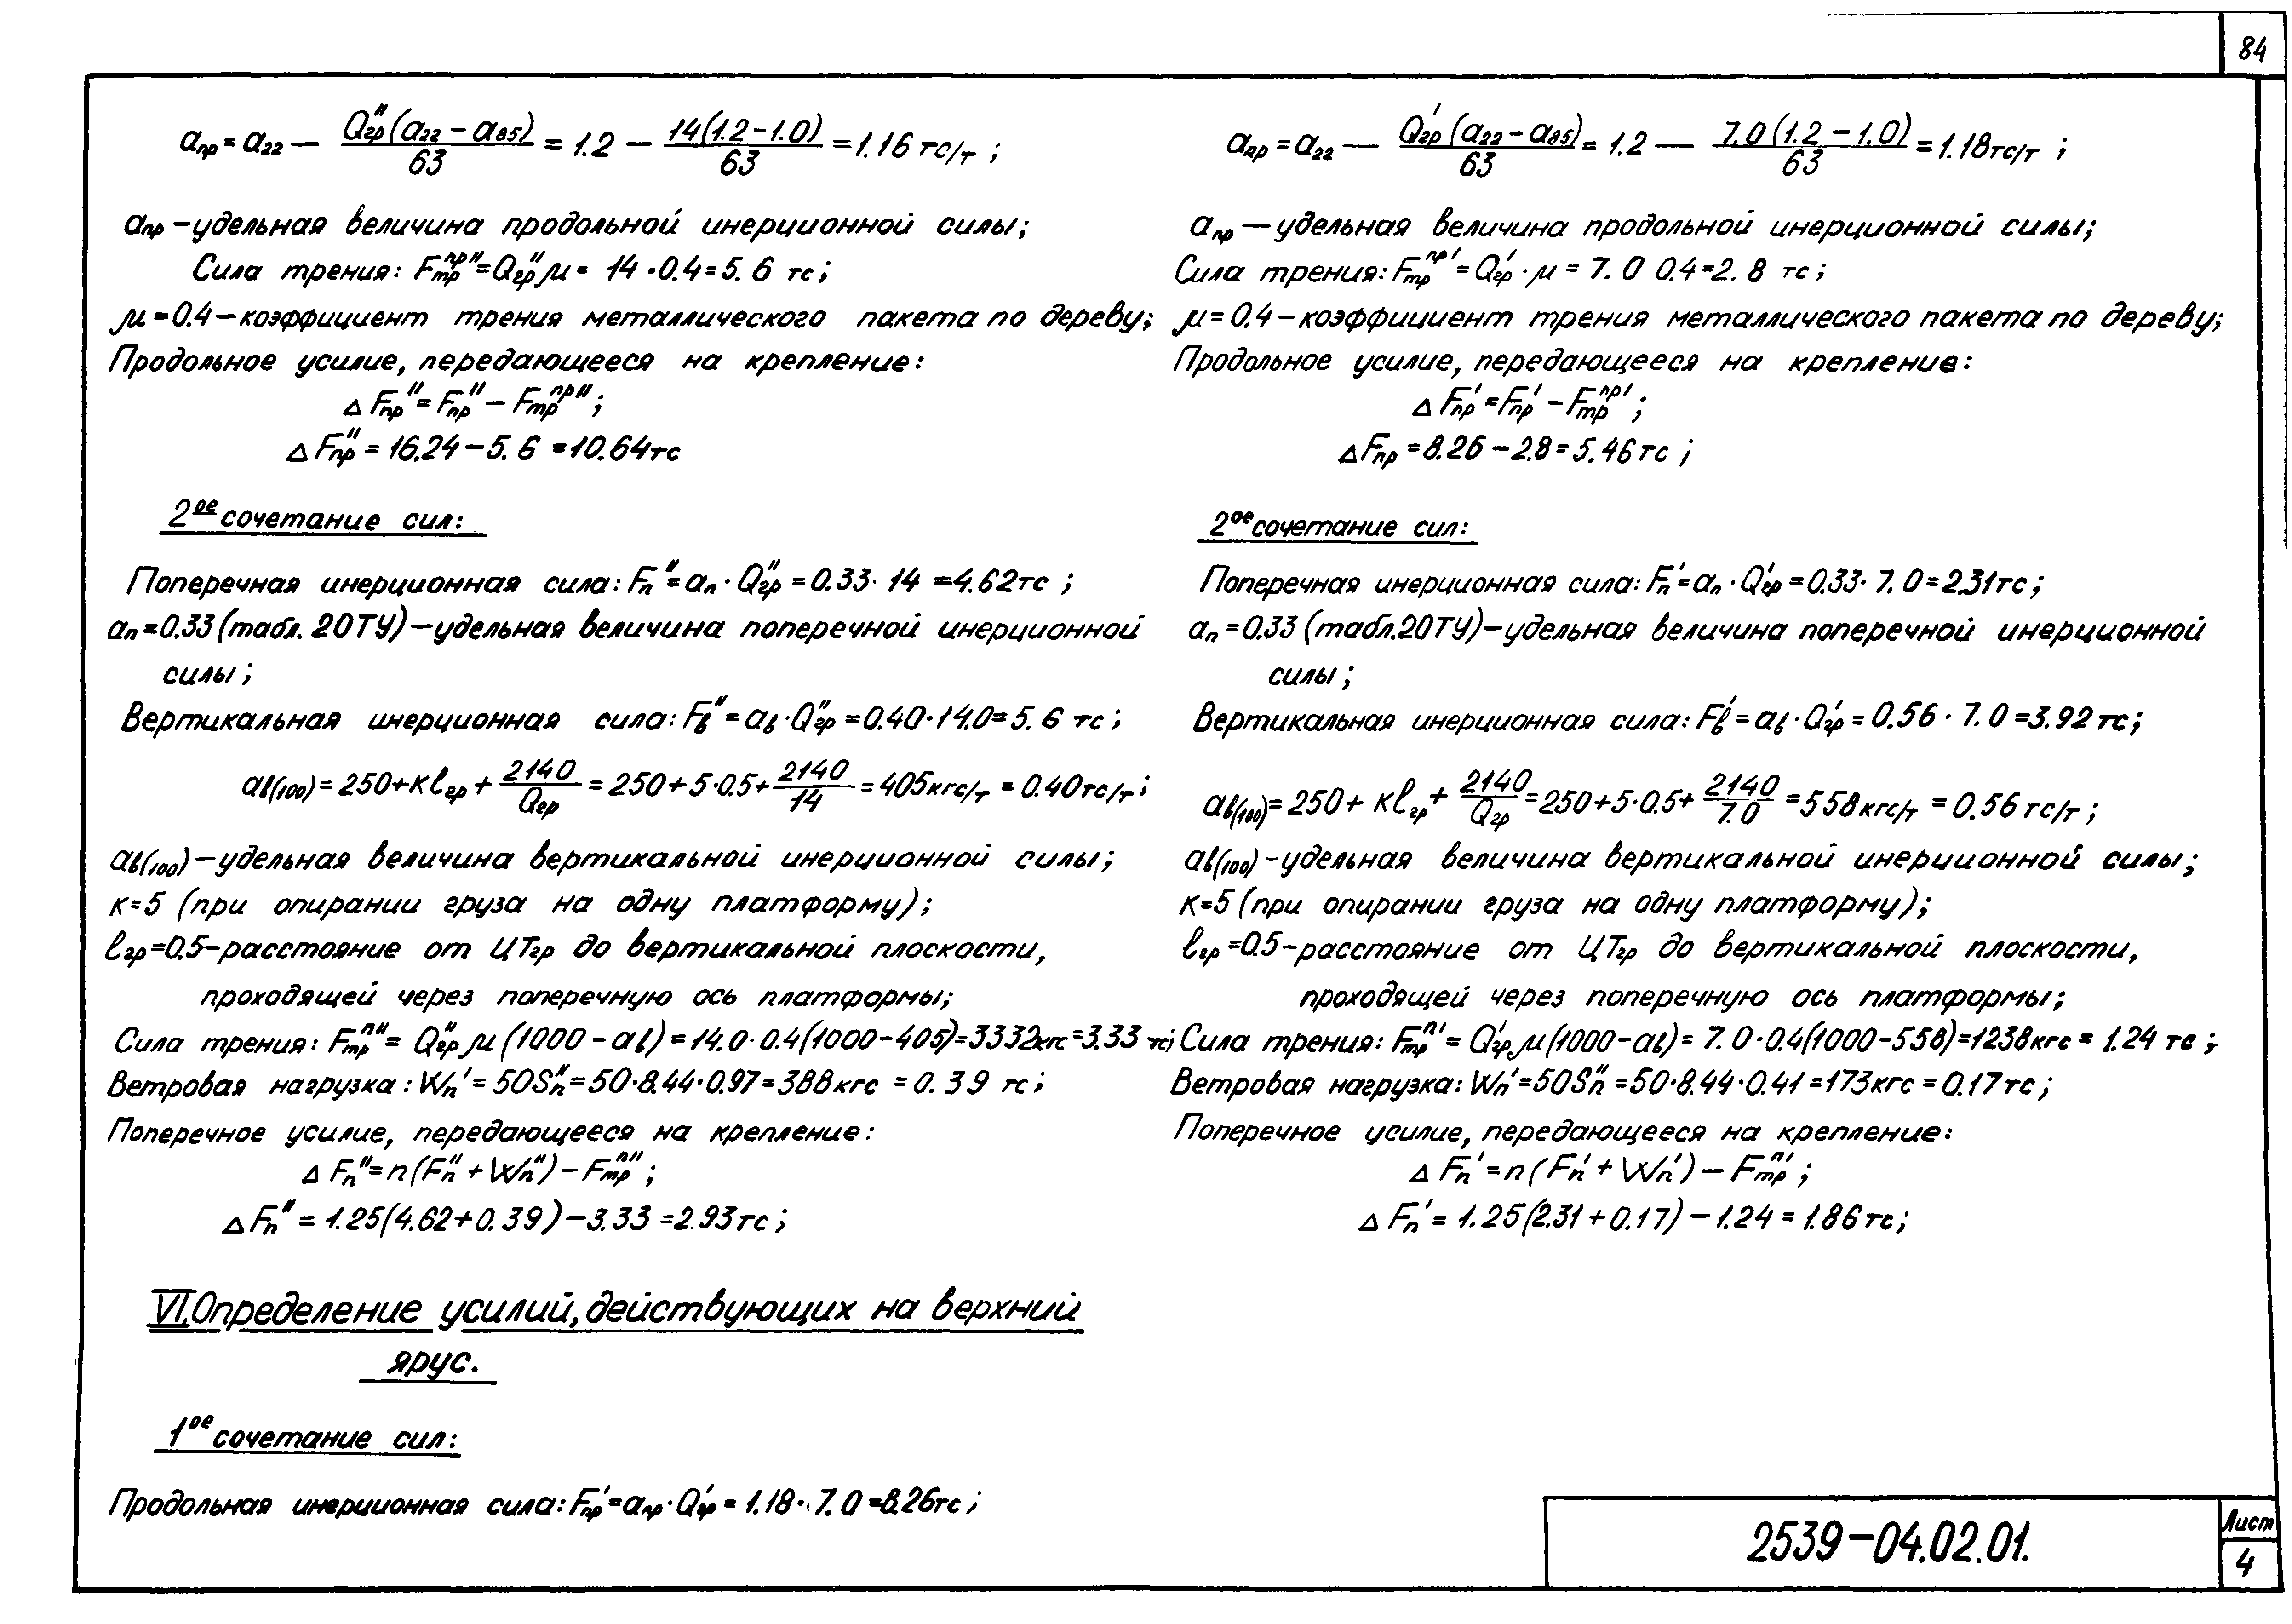 84
aпр = a22 — Q″гр (a22 – a85) / 63 = 1.2 — 14(1.2–1.0) / 63 = 1.16 тс/т ;
aпр – удельная величина продольной инерционной силы;
Сила трения: Fтр^пр″ = Q″гр μ = 14 · 0.4 = 5.6 тс;
μ = 0.4 – коэффициент трения металлического пакета по дереву;
Продольное усилие, передающееся на крепление:
Δ Fпр″ = Fпр″ – Fтр^пр″;
Δ Fпр″ = 16.24 – 5.6 = 10.64 тс
2ое сочетание сил:
Поперечная инерционная сила: Fп″ = aп · Q″гр = 0.33 · 14 = 4.62 тс ;
aп = 0.33 (табл. 20 ТУ) – удельная величина поперечной инерционной
силы ;
Вертикальная инерционная сила: Fв″ = aв · Q″гр = 0.40 · 14.0 = 5.6 тс ;
aв(100) = 250 + кℓгр + 2140 / Qгр = 250 + 5 · 0.5 + 2140 / 14 = 405 кгс/т = 0.40 тс/т ;
aв(100) – удельная величина вертикальной инерционной силы;
к=5 (при опирании груза на одну платформу);
ℓгр = 0.5 – расстояние от ЦТгр до вертикальной плоскости,
проходящей через поперечную ось платформы;
Сила трения: Fтр^п″ = Q″гр μ (1000 – aв) = 14.0 · 0.4 (1000 – 405) = 3332 кгс = 3.33 тс;
Ветровая нагрузка: Wп′ = 50Sп″ = 50 · 8.44 · 0.97 = 388 кгс = 0.39 тс;
Поперечное усилие, передающееся на крепление:
Δ Fп″ = n (Fп″ + Wп″) – Fтр^п″ ;
Δ Fп″ = 1.25 (4.62 + 0.39) – 3.33 = 2.93 тс ;
VI. Определение усилий, действующих на верхний
ярус.
1ое сочетание сил:
Продольная инерционная сила: Fпр′ = aпр · Q′гр = 1.18 · 7.0 = 8.26 тс ;
aпр = a22 — Q′гр (a22 – a85) / 63 = 1.2 — 7.0 (1.2 – 1.0) / 63 = 1.18 тс/т ;
aпр — удельная величина продольной инерционной силы;
Сила трения: Fтр^пр′ = Q′гр · μ = 7.0 0.4 = 2.8 тс ;
μ = 0.4 – коэффициент трения металлического пакета по дереву;
Продольное усилие, передающееся на крепление:
Δ Fпр′ = Fпр′ – Fтр^пр′ ;
Δ Fпр = 8.26 – 2.8 = 5.46 тс ;
2ое сочетание сил:
Поперечная инерционная сила: Fп′ = aп · Q′гр = 0.33 · 7.0 = 2.31 тс ;
aп = 0.33 (табл. 20 ТУ) – удельная величина поперечной инерционной
силы ;
Вертикальная инерционная сила: Fв′ = aв · Q′гр = 0.56 · 7.0 = 3.92 тс;
aв(100) = 250 + кℓгр + 2140 / Qгр = 250 + 5 · 0.5 + 2140 / 7.0 = 558 кгс/т = 0.56 тс/т ;
aв(100) – удельная величина вертикальной инерционной силы;
к=5 (при опирании груза на одну платформу);
ℓгр = 0.5 – расстояние от ЦТгр до вертикальной плоскости,
проходящей через поперечную ось платформы;
Сила трения: Fтр^п′ = Q′гр μ (1000 – aв) = 7.0 · 0.4 (1000 – 558) = 1238 кгс = 1.24 тс ;
Ветровая нагрузка: Wп′ = 50Sп″ = 50 · 8.44 · 0.41 = 173 кгс = 0.17 тс ;
Поперечное усилие, передающееся на крепление:
Δ Fп′ = n (Fп′ + Wп′) – Fтр^п′ ;
Δ Fп′ = 1.25 (2.31 + 0.17) – 1.24 = 1.86 тс ;
2539–04.02.01.
Лист
4